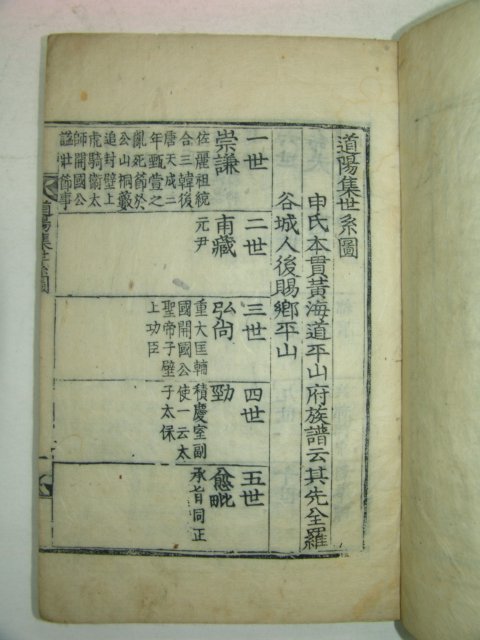 道陽集世系圖
申氏本貫黃海道平山府族譜云其先全羅
谷城人後賜鄕平山
一世
崇謙
佐麗祖統
合三韓後
唐天成二
年甄萱之
亂死節於
公山桐藪
追封壁上
虎騎衛太
師開國公
謚壯節事
二世
甫藏
元尹
三世
弘尙
重大匡輔
國開國公
聖帝子壁
上功臣
四世
勁
積慶室副
使一云太
子太保
五世
愈毗
承旨同正
道陽集世系圖